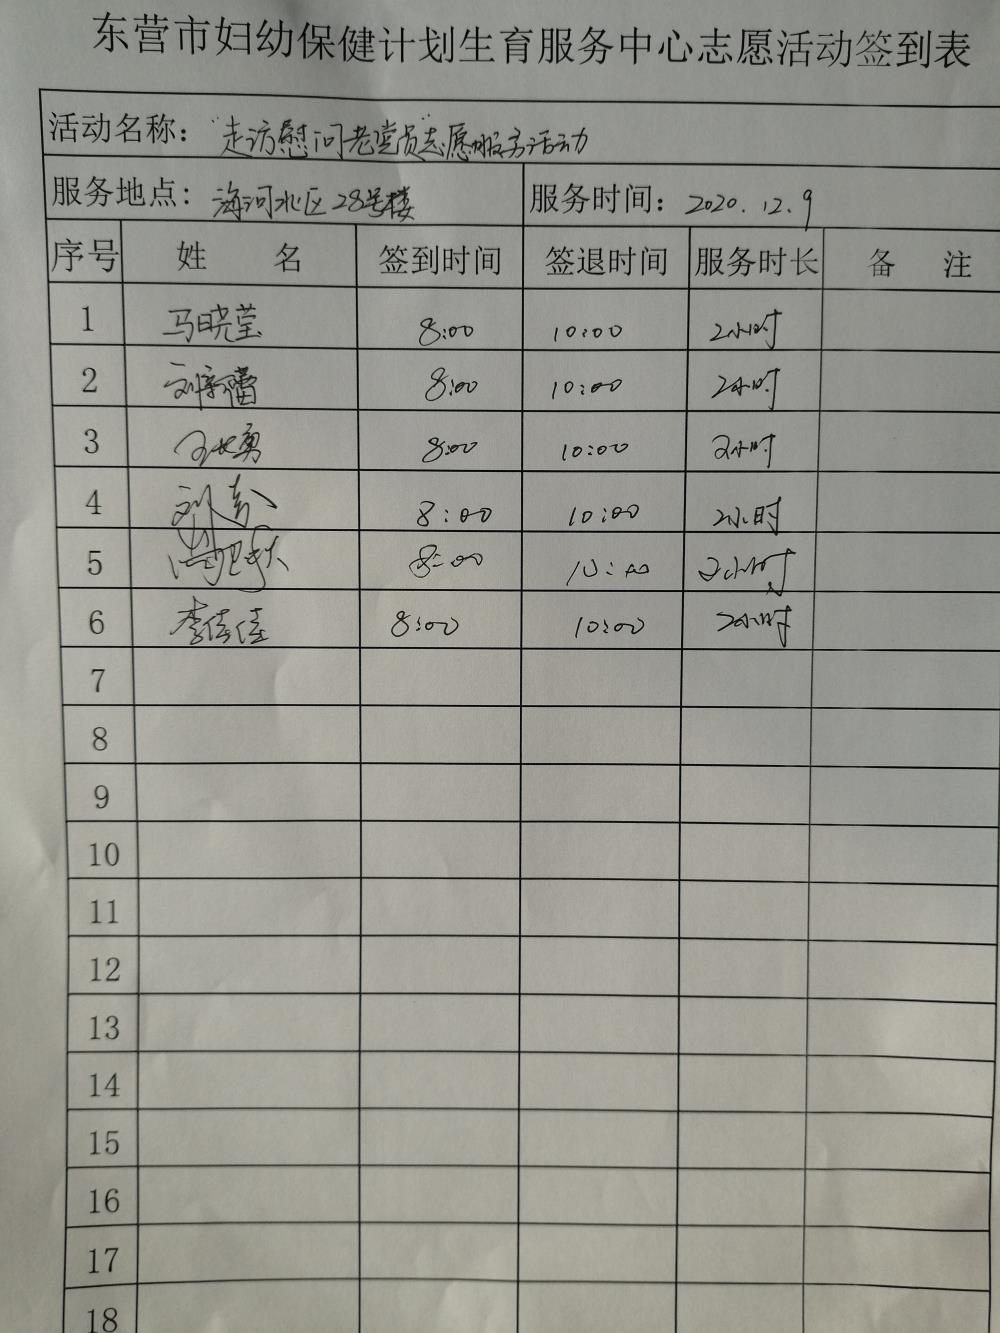 东营市妇幼保健计划生育服务中心志愿活动签到表
活动名称："走访慰问老党员"志愿服务活动
服务地点：海河北区28号楼 服务时间：2020.12.9
序号 姓 名 签到时间 签退时间 服务时长 备 注
1 马晓莹 8:00 10:00 2小时
2 刘新蕾 8:00 10:00 2小时
3 王大勇 8:00 10:00 2小时
4 刘 8:00 10:00 2小时
5 8:00 10:00 2小时
6 李佳佳 8:00 10:00 2小时
7
8
9
10
11
12
13
14
15
16
17
18